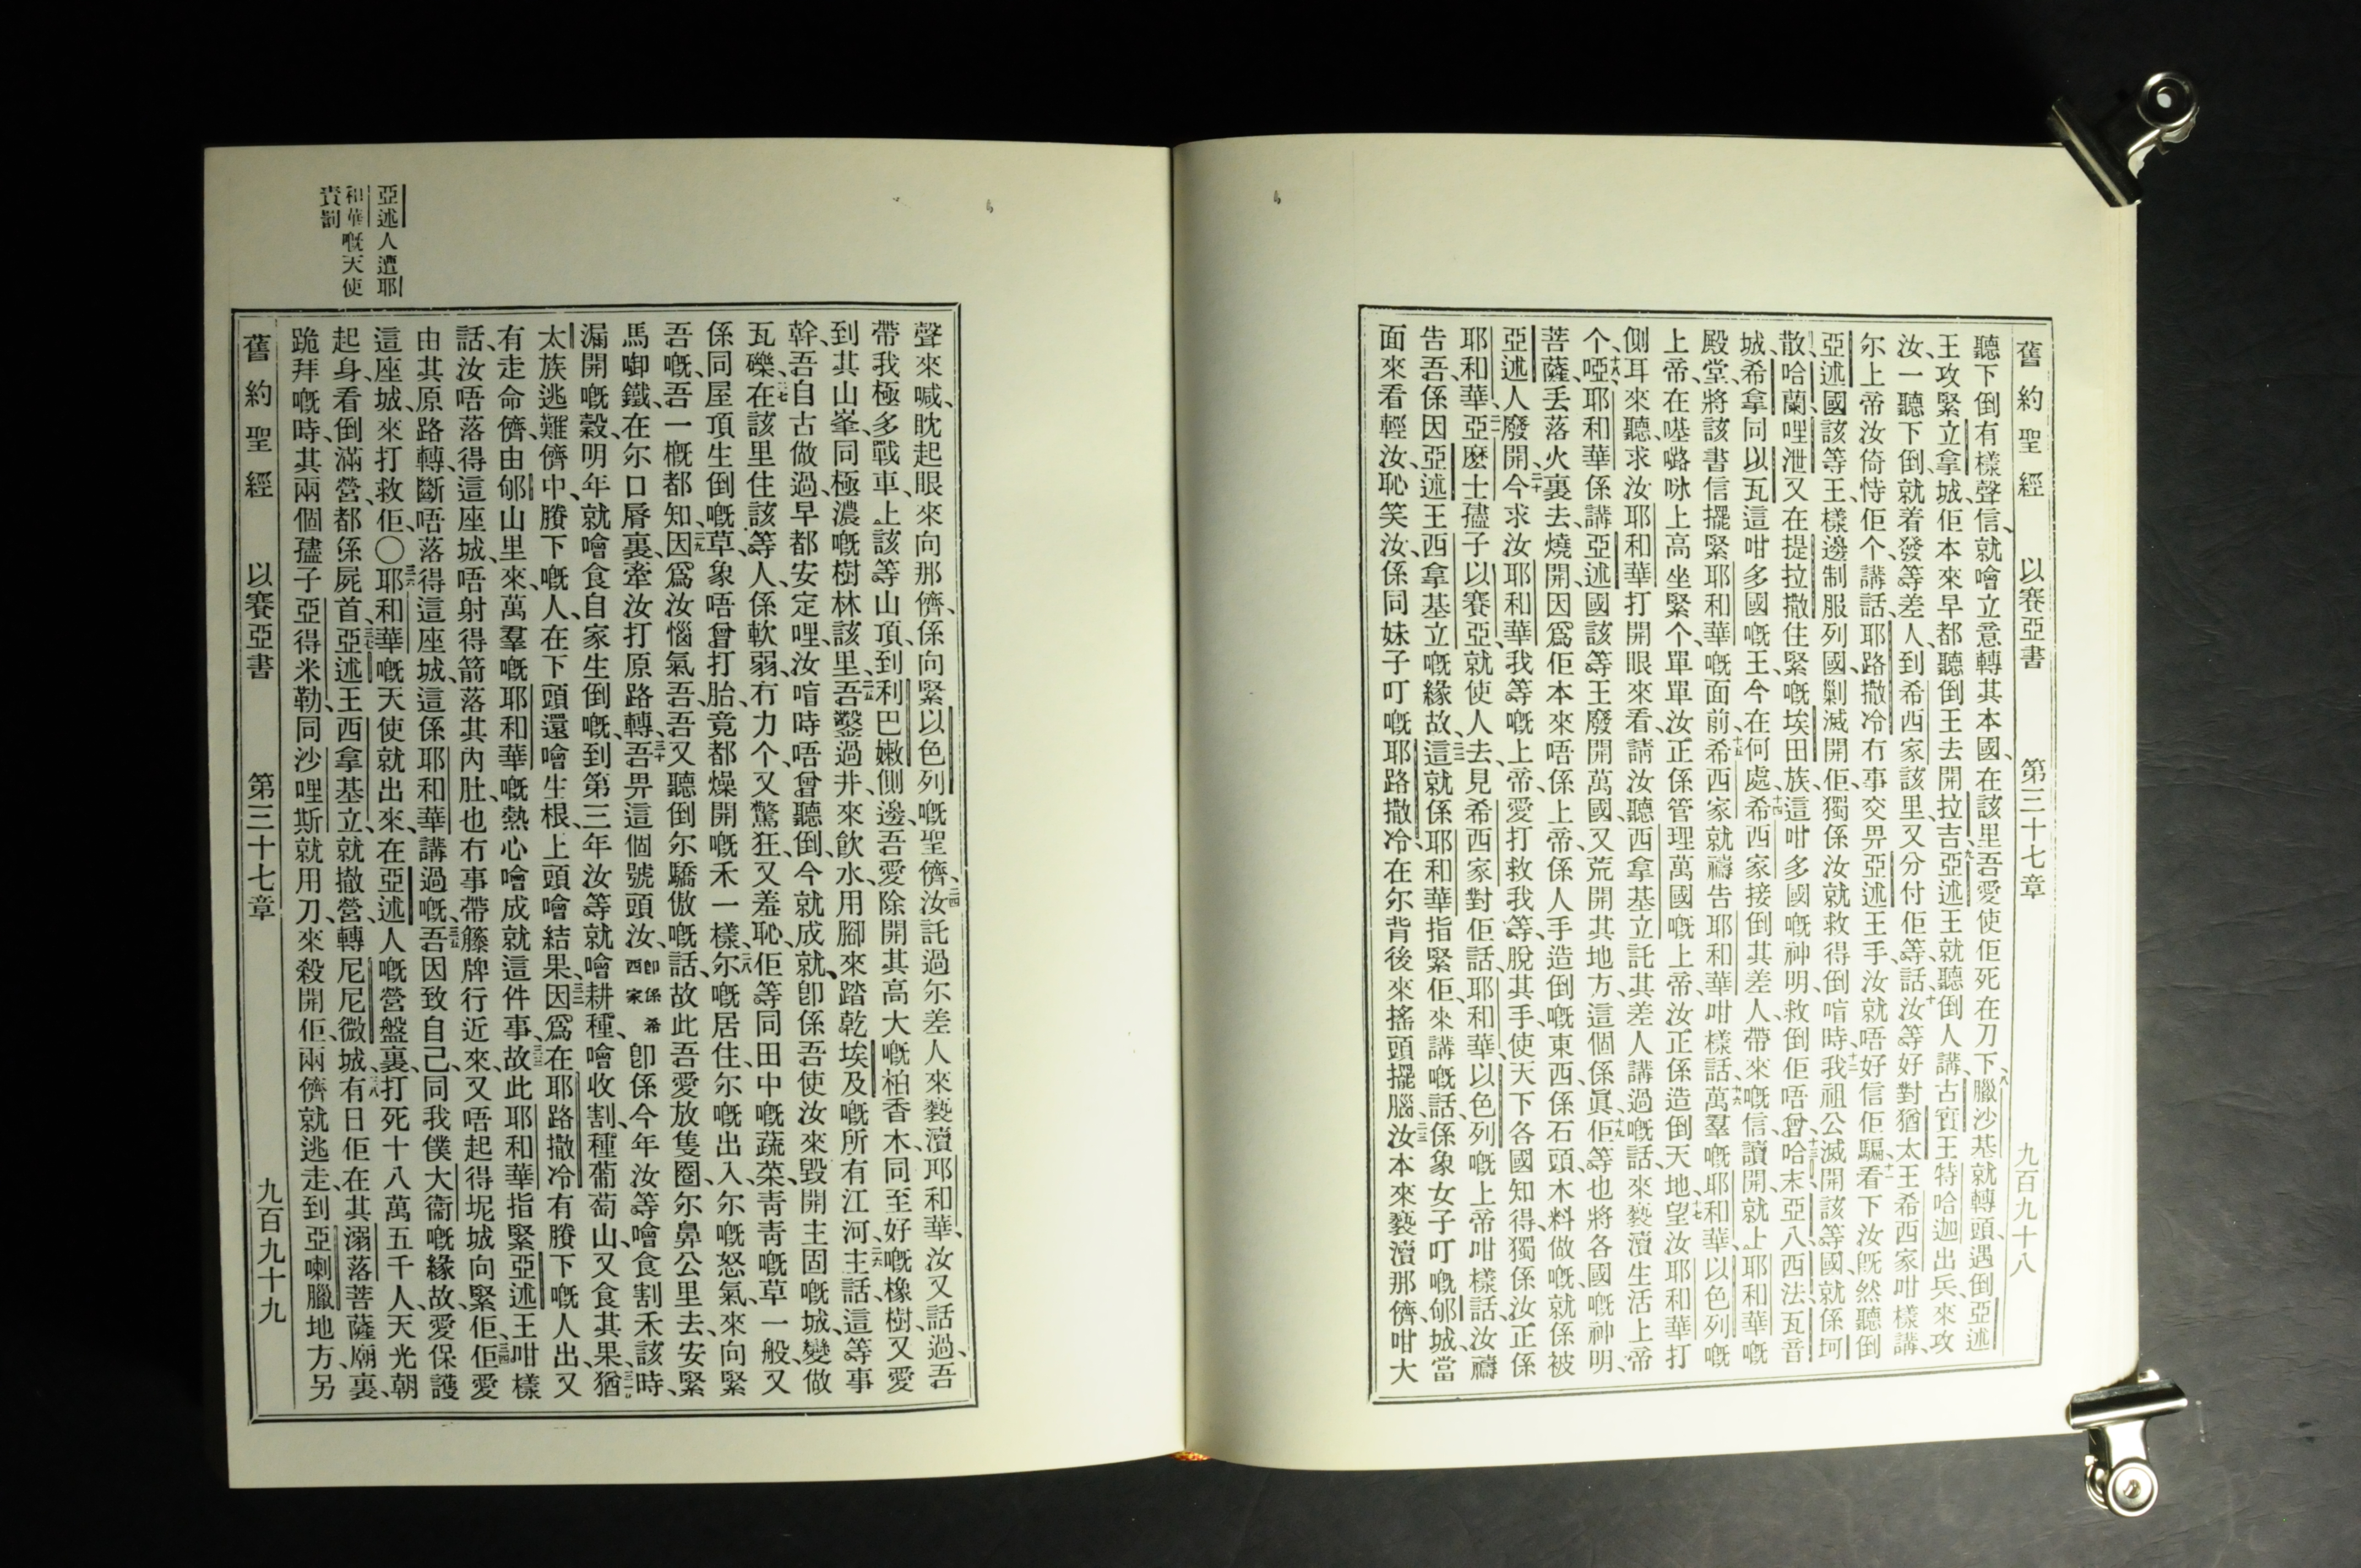 舊約聖經 以賽亞書 第三十七章 九百九十八
聽下倒有樣聲信、就噲立意轉其本國、在該里吾愛使佢死在刀下、八臘沙基就轉頭、遇倒亞述
王攻緊立拿城、佢本來早都聽倒王去開拉吉、九亞述王就聽倒人講、古實王特哈迦出兵來攻
汝、一聽下倒、就着發等差人、到希西家該里、又分付佢等話、十汝等好對猶太王希西家咁樣講、
尔上帝汝倚恃佢个、講話、耶路撒冷冇事交畀亞述王手、汝就唔好信佢騙、十一看下汝旣然聽倒
亞述國該等王、樣邊制服列國、剿滅開佢、獨係汝就救得倒唷時、十二我祖公滅開該等國、就係坷
散、哈蘭、哩泄、又在提拉撒住緊嘅埃田族、這咁多國嘅神明、救倒佢唔曾、十三哈末、亞八、西法瓦音
城、希拿、同以瓦這咁多國嘅王、今在何處、十四希西家接倒其差人帶來嘅信、讀開、就上耶和華嘅
殿堂、將該書信擺緊耶和華嘅面前、十五希西家就禱告耶和華咁樣話、十六萬羣嘅耶和華、以色列嘅
上帝、在𠸄嚧㕸上高坐緊个、單單汝正係管理萬國嘅上帝、汝正係造倒天地、十七望汝耶和華打
側耳來聽、求汝耶和華打開眼來看、請汝聽西拿基立託其差人講過嘅話、來褻瀆生活上帝
个、十八啞、耶和華係講亞述國該等王廢開萬國、又荒開其地方、這個係眞、十九佢等也將各國嘅神明、
菩薩、丢落火裏去燒開、因爲佢本來唔係上帝、係人手造倒嘅東西、係石頭木料做嘅、就係被
亞述人廢開、二十今求汝耶和華我等嘅上帝、愛打救我等、脫其手、使天下各國知得、獨係汝正係
耶和華、二一亞麼士孻子以賽亞、就使人去見希西家、對佢話、耶和華以色列嘅上帝咁樣話、汝禱
告吾、係因亞述王西拿基立嘅緣故、二二這就係耶和華指緊佢、來講嘅話、係象女子叮嘅郇城、當
面來看輕汝、恥笑汝、係同妹子叮嘅耶路撒冷、在尔背後來搖頭擺腦、二三汝本來褻瀆那儕、咁大
聲來喊、眈起眼來向那儕、係向緊以色列嘅聖儕、二四汝託過尔差人來褻瀆耶和華、汝又話過、吾
帶我極多戰車、上該等山頂、到利巴嫩側邊、吾愛除開其高大嘅柏香木、同至好嘅橡樹、又愛
到其山峯、同極濃嘅樹林該里、二五吾鑿過井來飮水、用腳來踏乾埃及嘅所有江河、二六主話、這等事
幹、吾自古做過、早都安定哩、汝唷時唔曾聽倒、今就成就、卽係吾使汝來毀開主固嘅城、變做
瓦礫、二七在該里住該等人、係軟弱冇力个、又驚狂、又羞恥、佢等同田中嘅蔬菜、靑靑嘅草一般、又
係同屋頂生倒嘅草、象唔曾打胎、竟都燥開嘅禾一樣、二八尔嘅居住、尔嘅出入、尔嘅怒氣、來向緊
吾嘅、吾一槪都知、二九因爲汝惱氣吾、吾又聽倒尔驕傲嘅話、故此吾愛放隻圈尔鼻公里去、安緊
馬啣鐵、在尔口脣裏、牽汝打原路轉、三十吾畀這個號頭汝、卽係希西家卽係今年汝等噲食割禾該時、
漏開嘅穀、明年就噲食自家生倒嘅、到第三年、汝等就噲耕種、噲收割、種葡萄山、又食其果、三一猶
太族逃難儕中、賸下嘅人、在下頭還噲生根、上頭噲結果、三二因爲在耶路撒冷有賸下嘅人出、又
有走命儕、由郇山里來、萬羣嘅耶和華嘅熱心、噲成就這件事、三三故此耶和華指緊亞述王咁樣
話、汝唔落得這座城、唔射得箭落其內肚、也冇事帶籐牌行近來、又唔起得坭城向緊佢、三四佢愛
由其原路轉、斷唔落得這座城、這係耶和華講過嘅、三五吾因致自己、同我僕大衞嘅緣故、愛保護
這座城、來打救佢、〇三六耶和華嘅天使就出來、在亞述人嘅營盤裏、打死十八萬五千人、天光朝
起身、看倒滿營、都係屍首、三七亞述王西拿基立、就撤營、轉尼尼微城、三八有日佢在其溺落菩薩廟裏、
跪拜嘅時、其兩個孻子亞得米勒、同沙哩斯、就用刀、來殺開佢、兩儕就逃走、到亞喇臘地方、另
亞述人遭耶
和華嘅天使
責罰
舊約聖經 以賽亞書 第三十七章 九百九十九